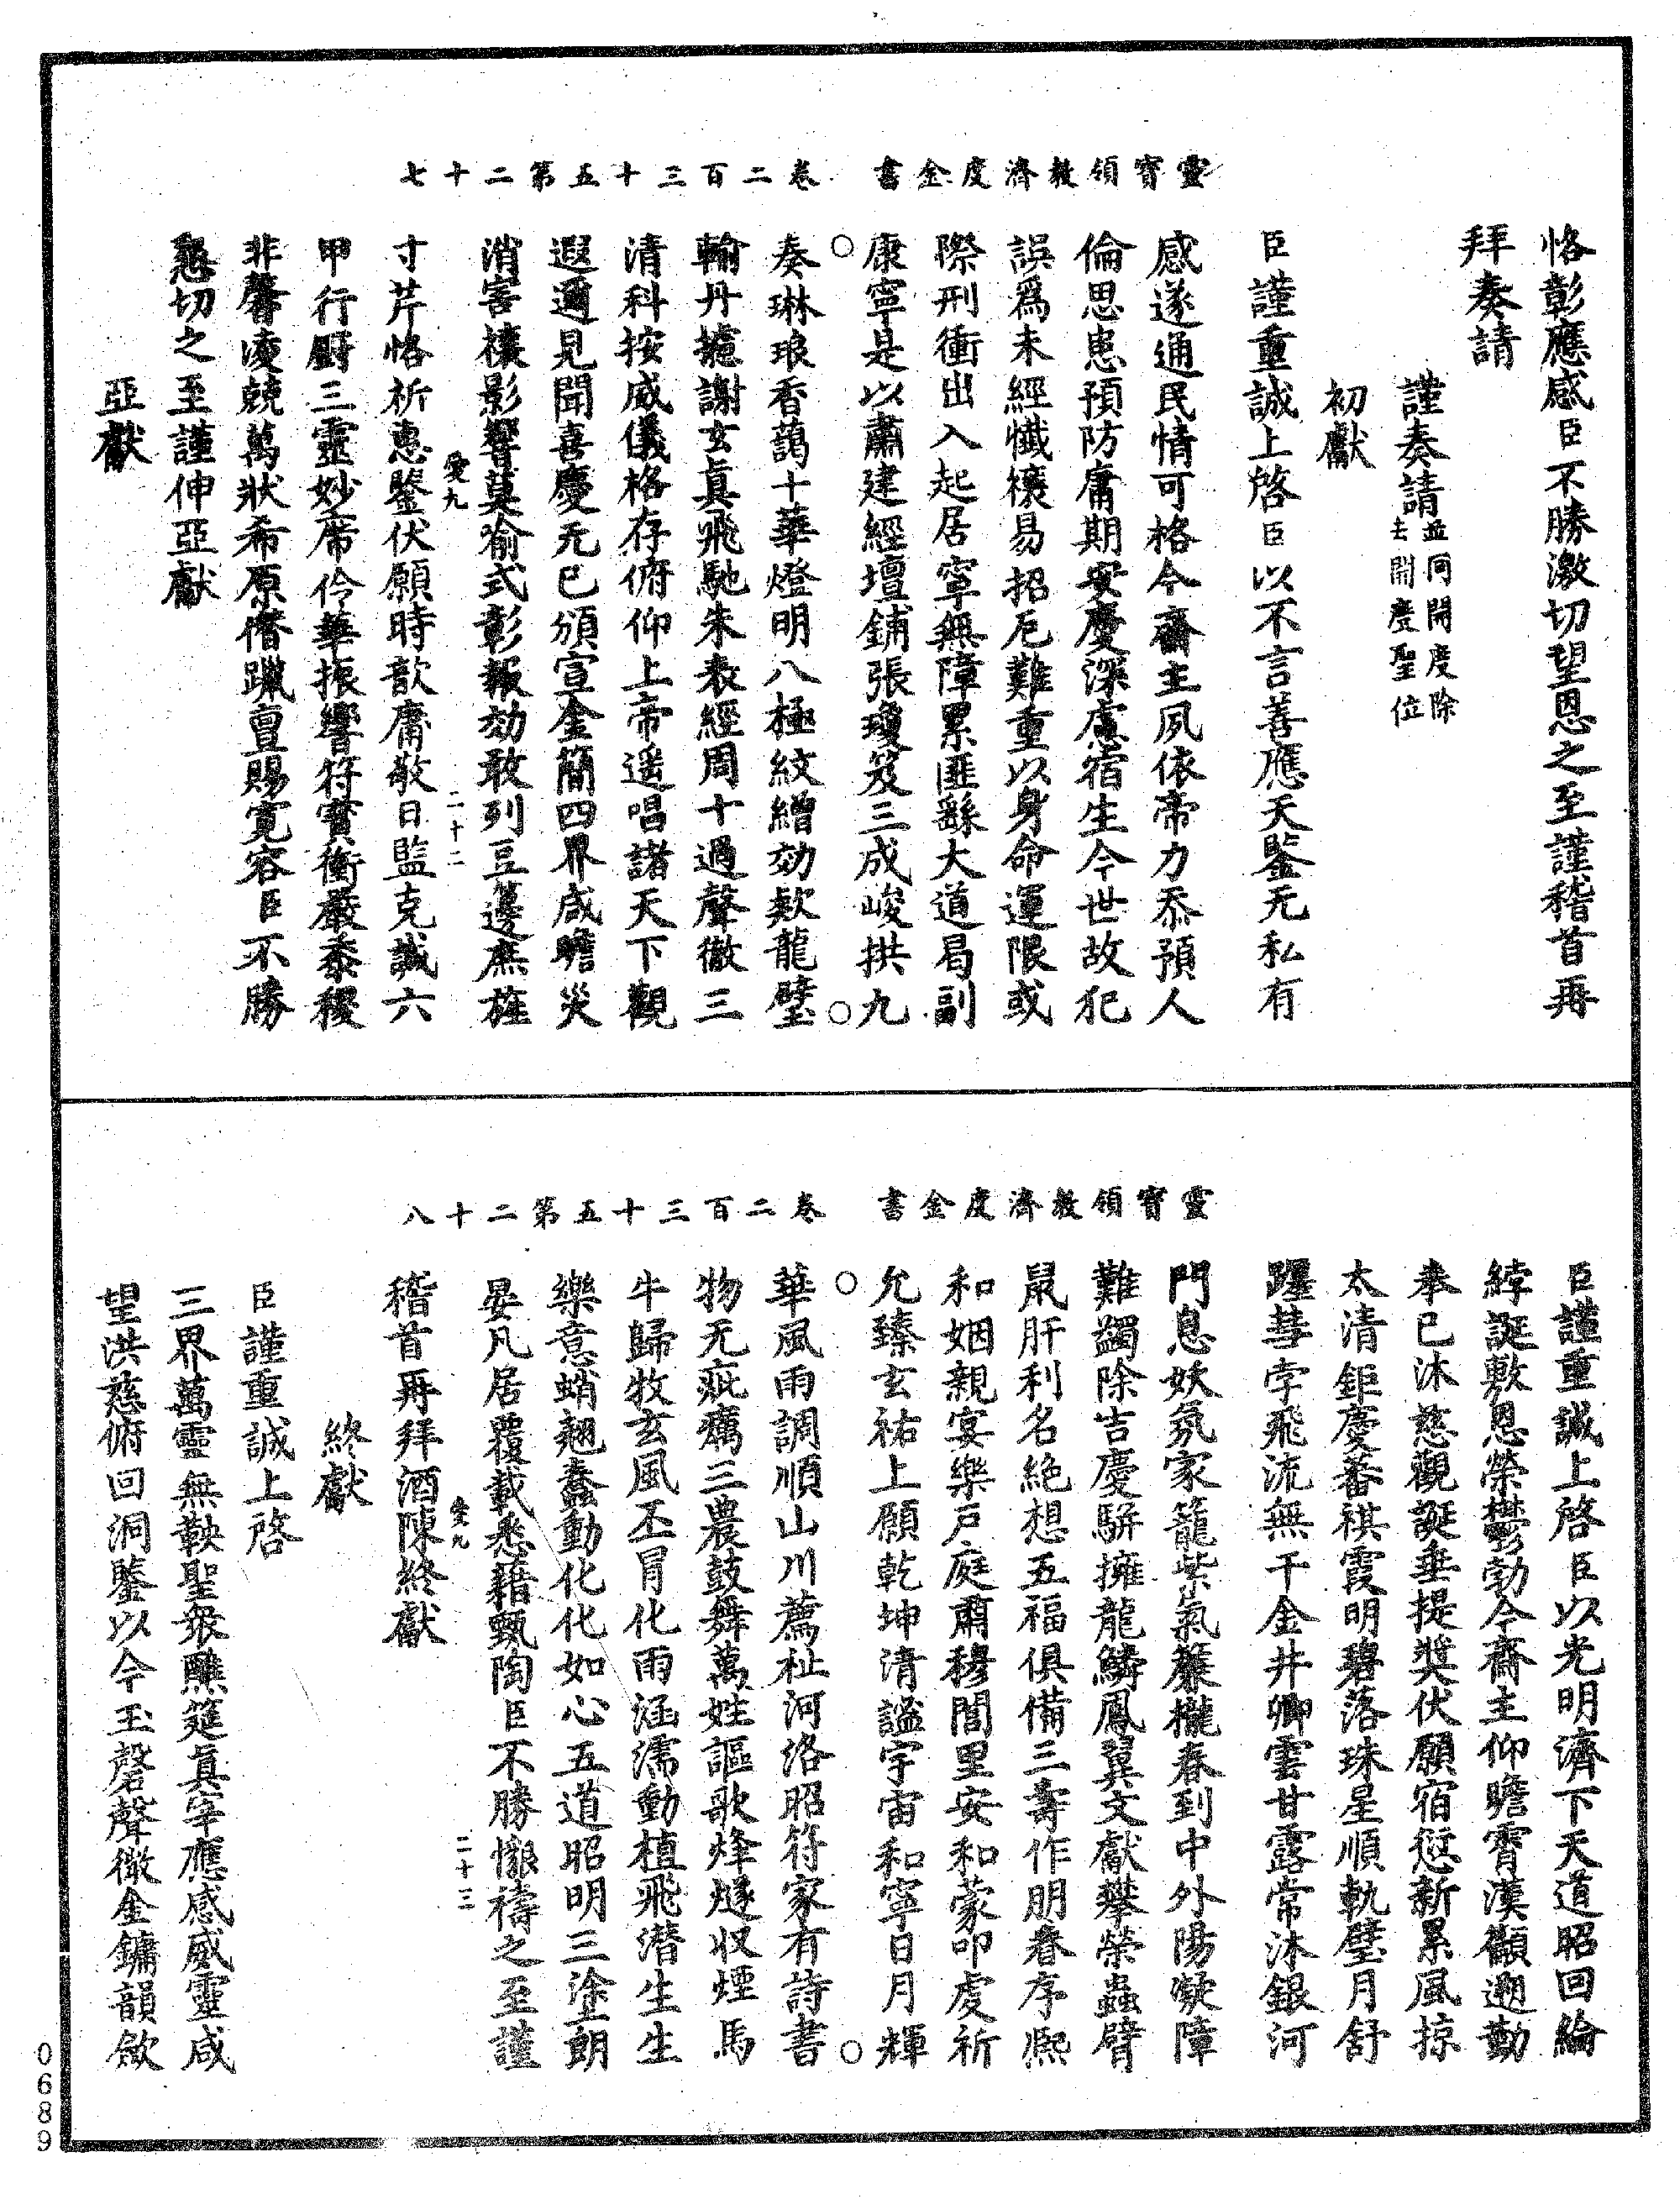 靈寶領教濟度金書　卷二百三十五第二十七
恪彰應感臣不勝激切望恩之至謹稽首再
拜奏請
謹奏請並同開度除去開度聖位
初獻
臣謹重誠上啓臣以不言善應天鑒无私有
感遂通民情可格今齋主夙依帝力忝預人
倫思患預防庸期安慶深慮宿生今世故犯
誤爲未經懺禳易招厄難重以身命運限或
際刑衝出入起居寧無障累匪繇大道曷副
康寧是以肅建經壇鋪張瓊笈三成峻拱九
奏琳琅香藹十華燈明八極紋繒効款龍璧
輸丹摅謝玄眞飛馳朱表經周十過聲徹三
清科按威儀格存俯仰上帝遥唱諸天下觀
遐邇見聞喜慶无已頒宣金簡四界咸瞻災
消害禳影響莫喻式彰報効敢列豆籩庶旌
愛九
二十二
寸芹恪祈惠鑒伏願時歆庸敬日監克諴六
甲行厨三靈妙席伶華振響符實衡嚴黍稷
非馨凌兢萬狀希原僭躐亶賜寬容臣不勝
懇切之至謹伸亞獻
亞獻
靈寶領教濟度金書　卷二百三十五第二十八
臣謹重誠上啓臣以光明濟下天道昭回綸
綍誕敷恩榮鬱勃今齋主仰瞻霄漢顒遡勤
奉已沐慈觀誕垂提奬伏願宿愆新累風掠
太清鉅慶蕃祺霞明碧落珠星順軌璧月舒
躔彗孛飛流無干金井卿雲甘露常沐銀河
門息妖氛家籠紫氣簾櫳春到中外陽凝障
難蠲除吉慶駢擁龍鱗鳳翼文獻攀榮蟲臂
鼠肝利名絶想五福俱備三壽作朋眷序熙
和姻親宴樂戸庭肅穆閭里安和蒙叩虔祈
允臻玄祐上願乾坤清謐宇宙和寧日月輝
華風雨調順山川薦祉河洛昭符家有詩書
物无疵癘三農鼓舞萬姓謳歌烽燧収煙馬
牛歸牧玄風丕冒化雨涵濡動植飛潜生生
樂意蛸翹蠢動化化如心五道昭明三塗朗
晏凡居覆載悉藉甄陶臣不勝懷禱之至謹
愛九
二十三
稽首再拜酒陳終獻
終獻
臣謹重誠上啓
三界萬靈無鞅聖衆醮筵眞宰應感威靈咸
望洪慈俯回洞鑒以今玉磬聲徹金鏞韻歛
0689